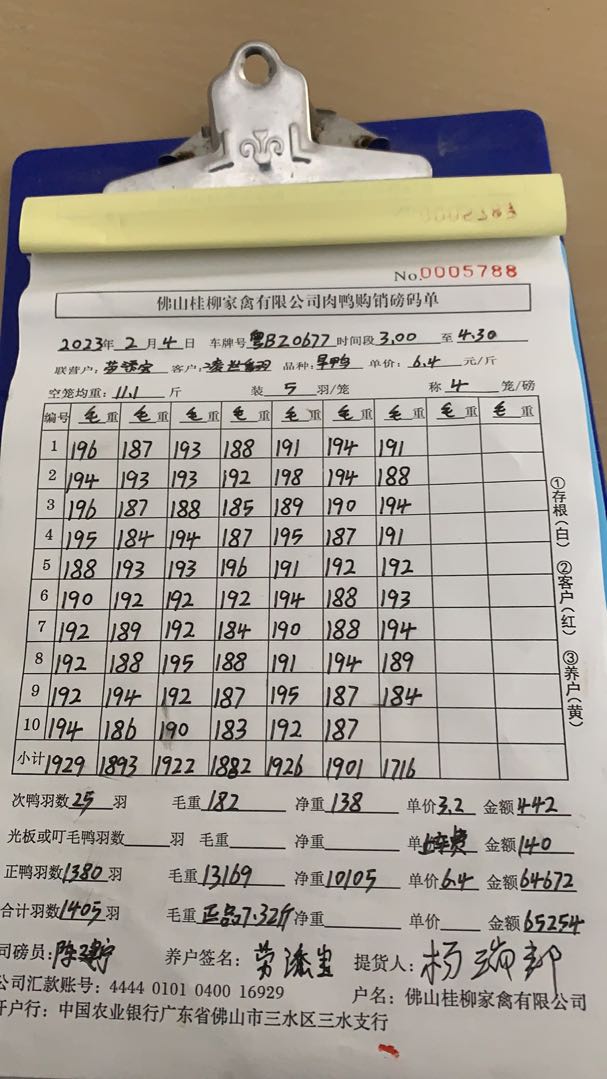 No.0005788
佛山桂柳家禽有限公司肉鸭购销磅码单
2023年 2 月 4 日 车牌号 粤BZ0677 时间段 3.00 至 4.30
联营户: 客户: 品种: 旱鸭 单价: 6.4 元/斤
空笼均重: 11.1 斤 装 5 羽/笼 称 4 笼/磅
编号 毛重 毛重 毛重 毛重 毛重 毛重 毛重 毛重 毛重
1 196 187 193 188 191 194 191
2 194 193 193 192 198 194 188
3 196 187 188 185 189 190 194
4 195 184 194 187 195 187 191
5 188 193 193 196 191 192 192
6 190 192 192 192 194 188 193
7 192 189 192 184 190 188 194
8 192 188 195 188 191 194 189
9 192 194 192 187 195 187 184
10 194 186 190 183 192 187
小计 1929 1893 1922 1882 1926 1901 1716
①存根(白) ②客户(红) ③养户(黄)
次鸭羽数 25 羽 毛重 182 净重 138 单价 3.2 金额 442
光板或叮毛鸭羽数 羽 毛重 净重 单 金额 140
正鸭羽数 1380 羽 毛重 13169 净重 10105 单价 6.4 金额 64672
合计羽数 1405 羽 毛重 正品7.32斤 净重 单价 金额 65254
司磅员: 养户签名: 提货人: 杨瑞郭
公司汇款账号: 4444 0101 0400 16929 户名: 佛山桂柳家禽有限公司
开户行: 中国农业银行广东省佛山市三水区三水支行